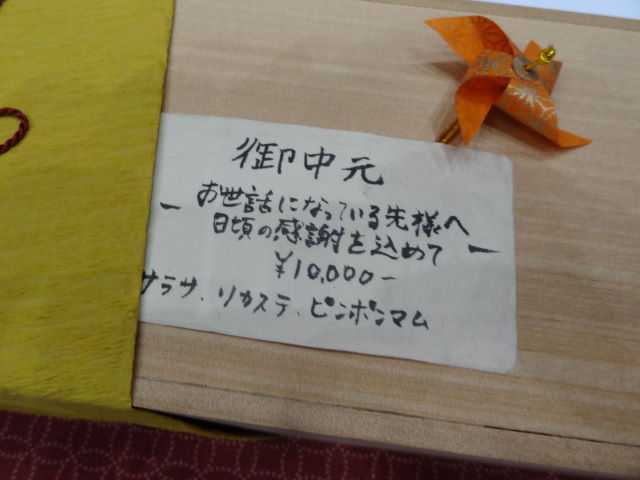 御中元
ー お世話になっている先様へ
日頃の感謝を込めて ー
¥10,000-
サラサ、リカステ、ピンポンマム